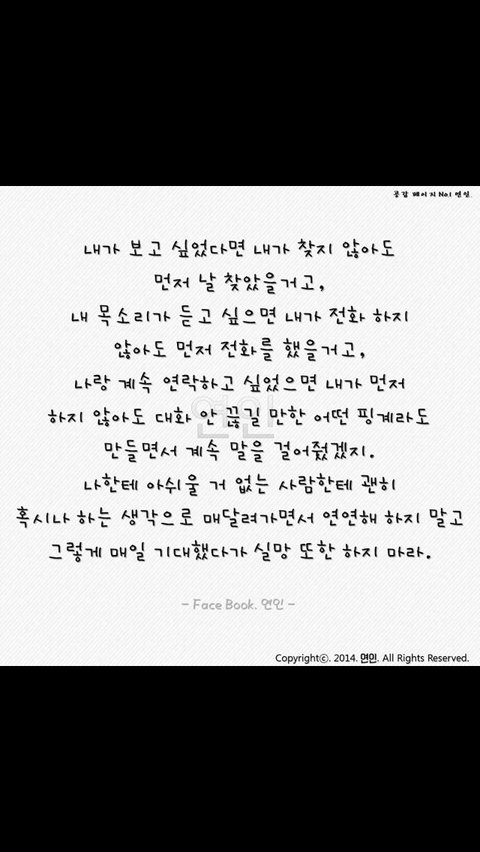 공감 페이지 No.1 연인
내가 보고 싶었다면 내가 찾지 않아도
먼저 날 찾았을거고,
내 목소리가 듣고 싶으면 내가 전화 하지
않아도 먼저 전화를 했을거고,
나랑 계속 연락하고 싶었으면 내가 먼저
하지 않아도 대화 안 끊길 만한 어떤 핑계라도
연인
만들면서 계속 말을 걸어줬겠지.
나한테 아쉬울 거 없는 사람한테 괜히
혹시나 하는 생각으로 매달려가면서 연연해 하지 말고
그렇게 매일 기대했다가 실망 또한 하지 마라.
- Face Book. 연인 -
Copyrightⓒ. 2014. 연인. All Rights Reserved.